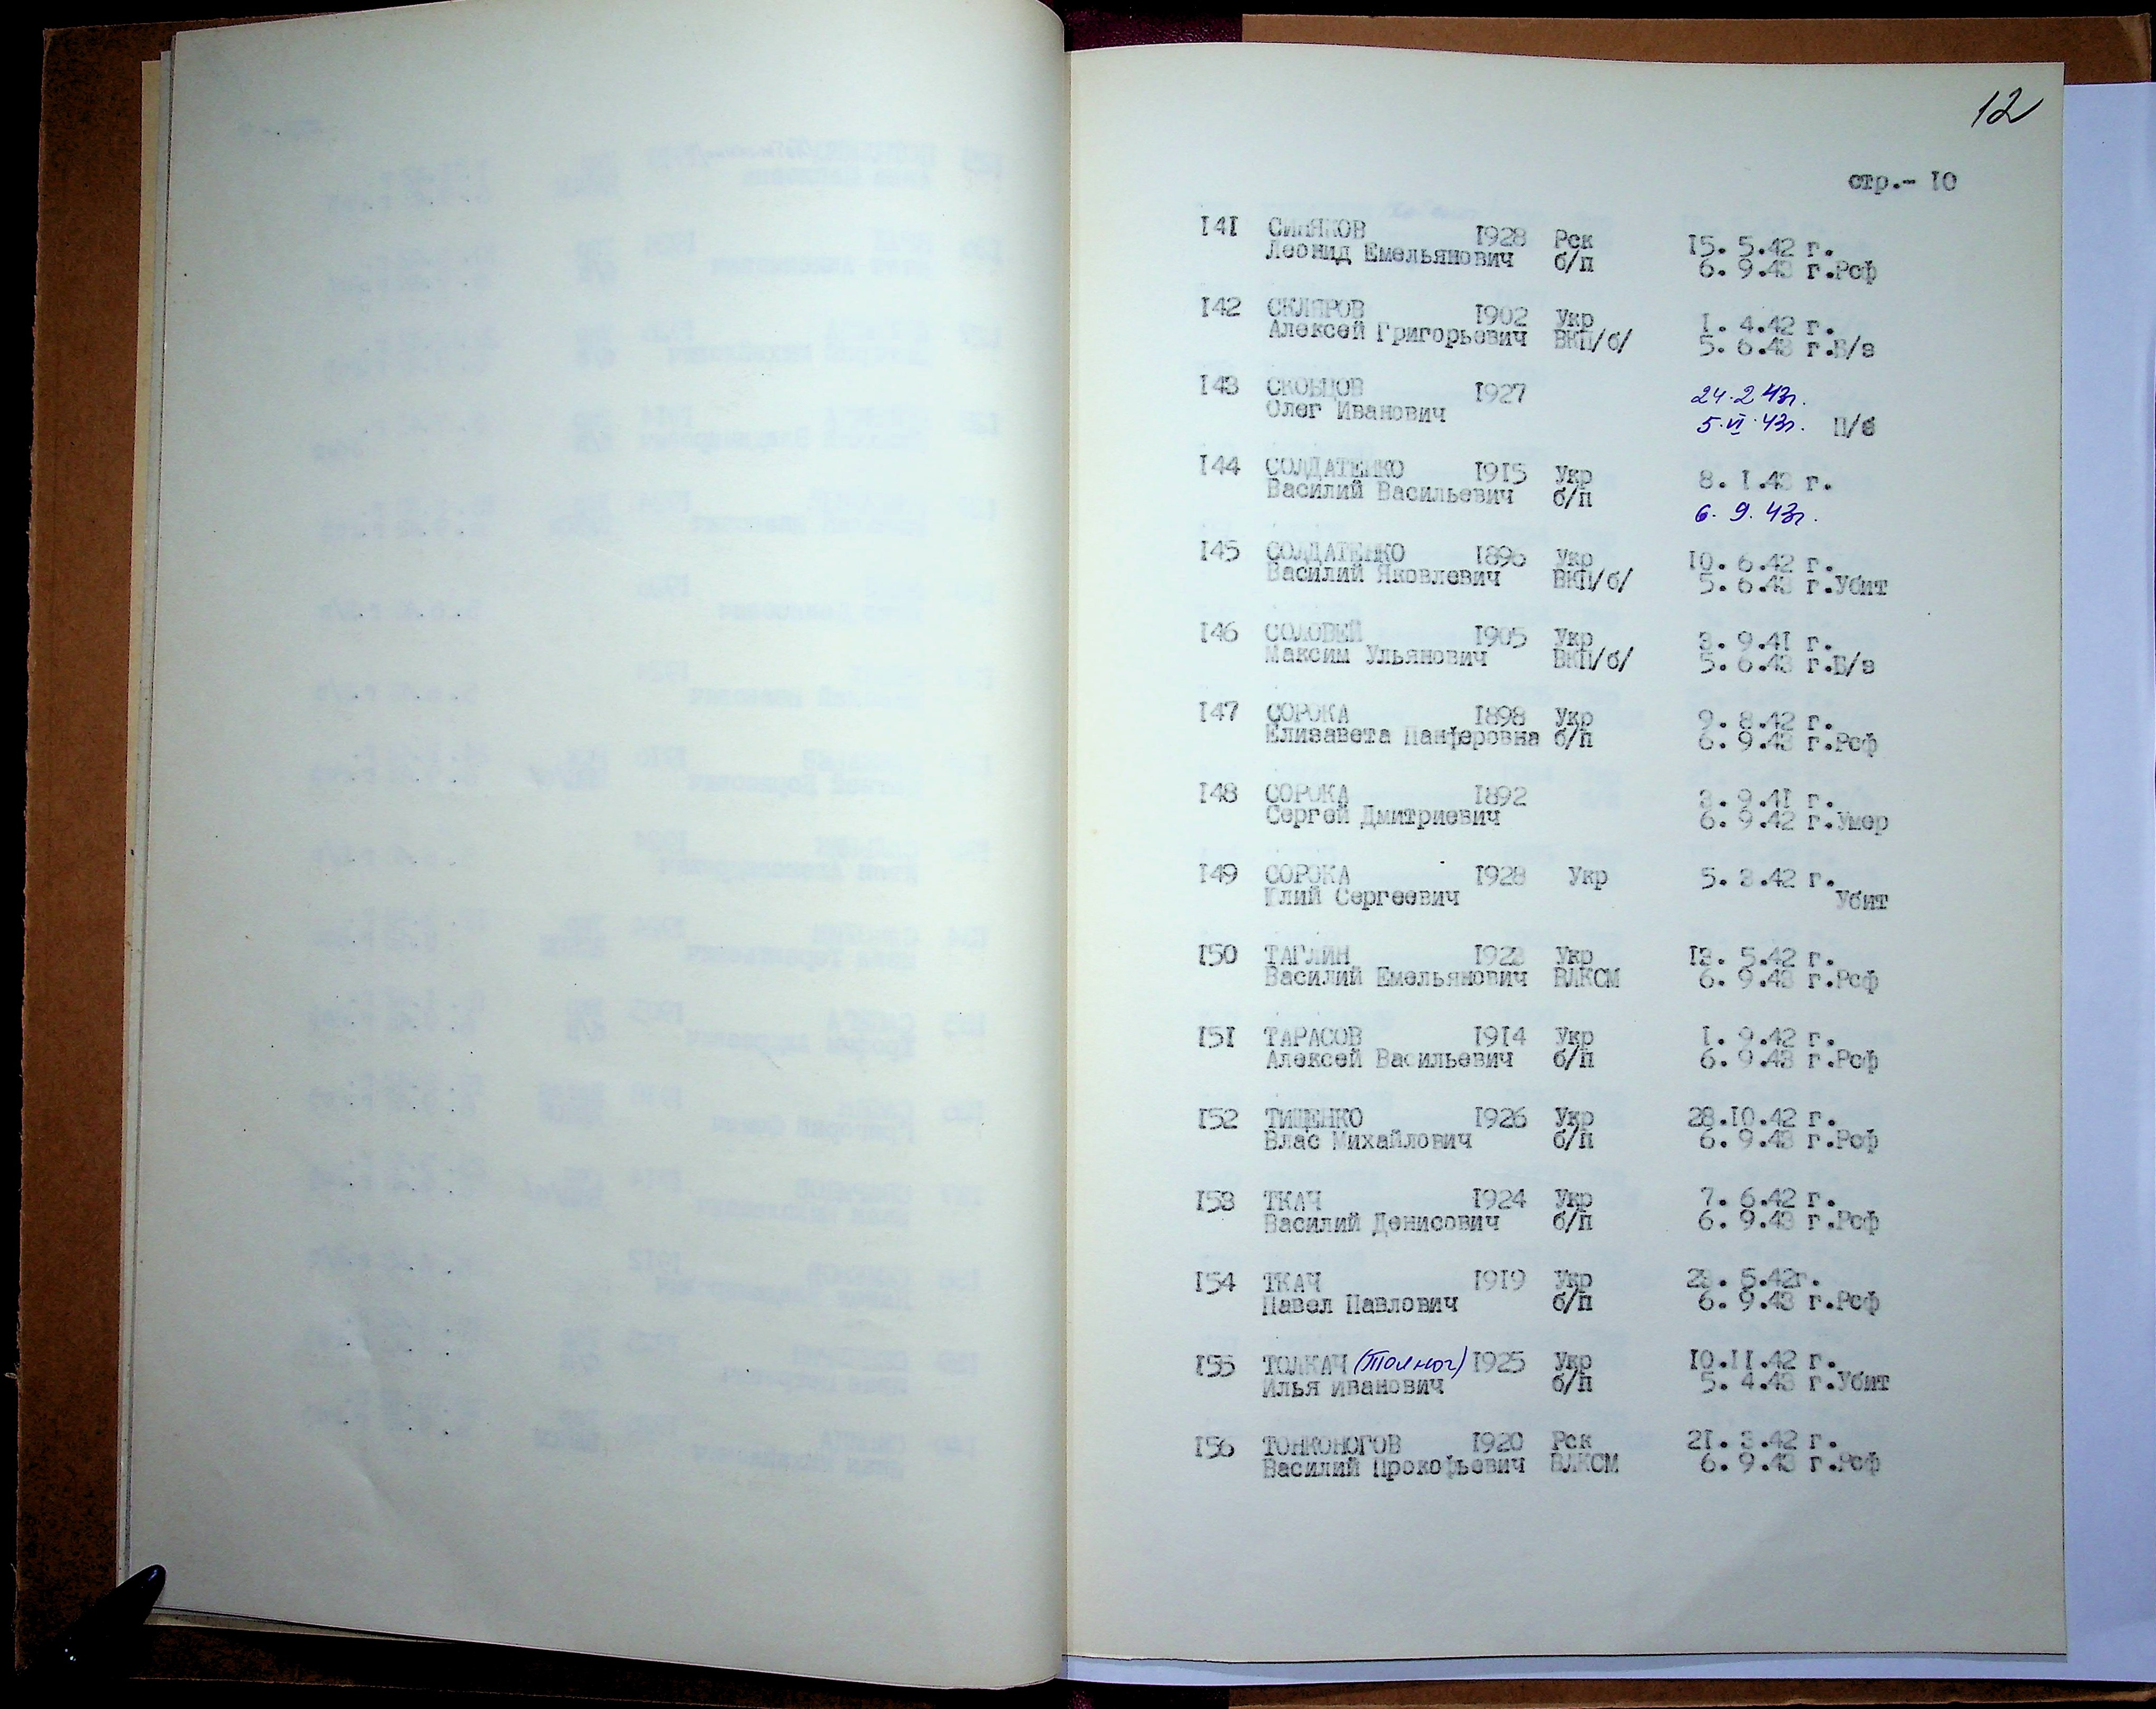 12
стр.- 10
141 СИНЯКОВ 1928 Рск 15. 5.42 г.
Леонид Емельянович б/п 6. 9.43 г.Рсф
142 СКЛЯРОВ 1902 Укр 1. 4.42 г.
Алексей Григорьевич ВКП/б/ 5. 6.43 г.Б/в
143 СКОБЦОВ 1927 24.2 43г.
Олег Иванович 5.VI.43г. П/б
144 СОЛДАТЕНКО 1915 Укр 8. 1.43 г.
Василий Васильевич б/п 6. 9. 43г.
145 СОЛДАТЕНКО 1896 Укр 10. 6.42 г.
Василий Яковлевич ВКП/б/ 5. 6.43 г.Убит
146 СОЛОВЕЙ 1905 Укр 3. 9.41 г.
Максим Ульянович ВКП/б/ 5. 6.43 г.Б/в
147 СОРОКА 1898 Укр 9. 8.42 г.
Елизавета Панферовна б/п 6. 9.43 г.Рсф
148 СОРОКА 1892 3. 9.41 г.
Сергей Дмитриевич 6. 9.42 г.Умер
149 СОРОКА 1928 Укр 5. 3.42 г.
Юлий Сергеевич Убит
150 ТАГЛИН 1923 Укр 13. 5.42 г.
Василий Емельянович ВЛКСМ 6. 9.43 г.Рсф
151 ТАРАСОВ 1914 Укр 1. 9.42 г.
Алексей Васильевич б/п 6. 9.43 г.Рсф
152 ТИЩЕНКО 1926 Укр 28.10.42 г.
Влас Михайлович б/п 6. 9.43 г.Рсф
153 ТКАЧ 1924 Укр 7. 6.42 г.
Василий Денисович б/п 6. 9.43 г.Рсф
154 ТКАЧ 1919 Укр 23. 5.42г.
Павел Павлович б/п 6. 9.43 г.Рсф
155 ТОЛКАЧ 1925 Укр 10.11.42 г.
Илья Иванович б/п 5. 4.43 г.Убит
156 ТОНКОНОГОВ 1920 Рск 21. 3.42 г.
Василий Прокофьевич ВЛКСМ 6. 9.43 г.Рсф